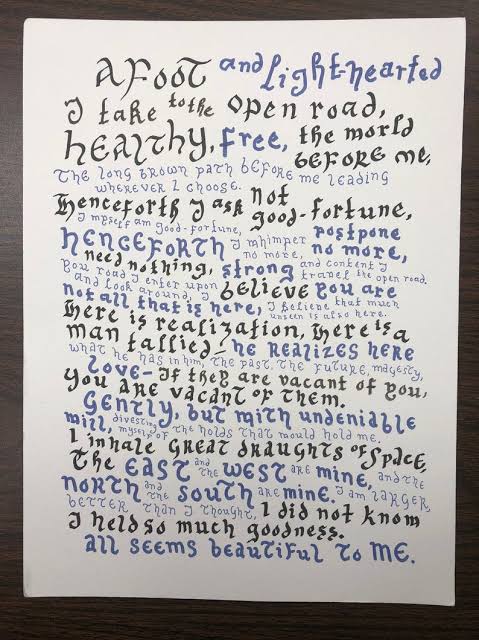 Afoot and light-hearted
I take to the open road,
Healthy, free, the world
before me,
The long brown path before me leading
wherever I choose.
Henceforth I ask not
good-fortune,
I myself am good-fortune,
Henceforth I whimper no more, postpone no more,
need nothing, strong and content I travel the open road.
You road I enter upon and look around, I believe you are
not all that is here, I believe that much unseen is also here.
Here is realization, Here is a
man tallied—he realizes here
what he has in him, the past, the future, majesty,
love—If they are vacant of you,
you are vacant of them.
Gently, but with undeniable
will, divesting myself of the holds that would hold me.
I inhale great draughts of space,
the east and the west are mine, and the
north and the south are mine. I am larger,
better than I thought, I did not know
I held so much goodness.
all seems beautiful to me.